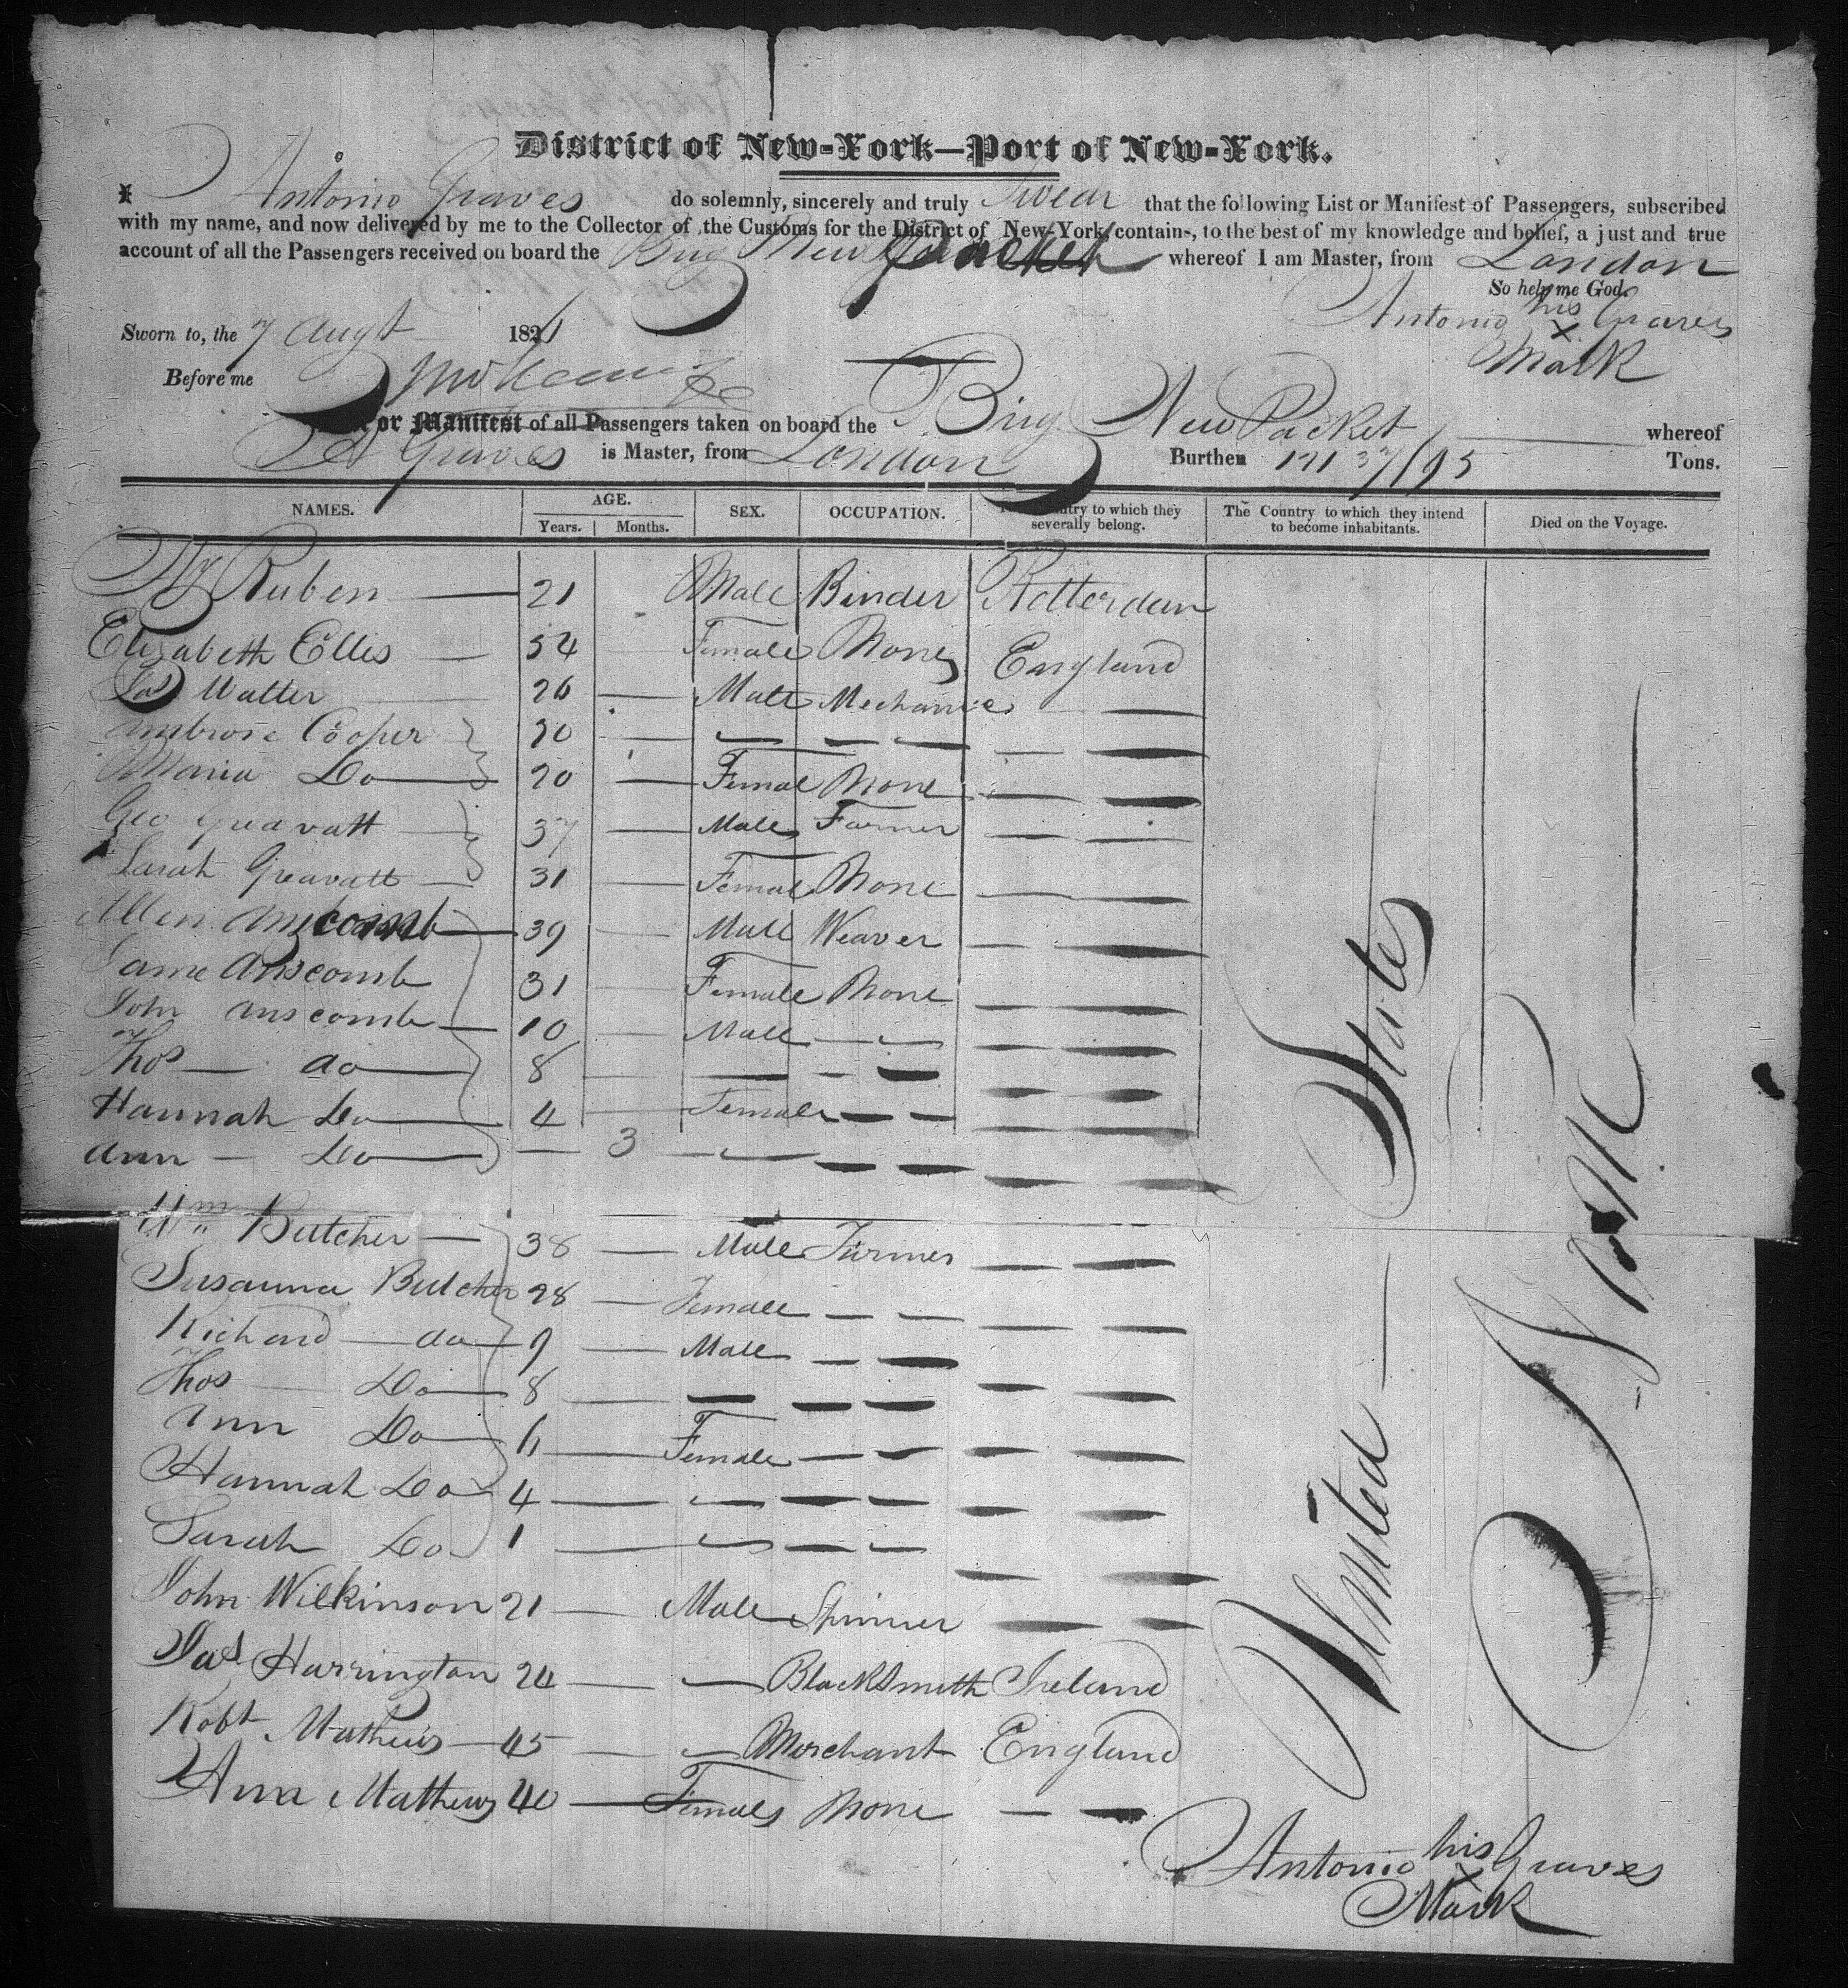 District of New-York—Port of New-York.
I Antonio Graves do solemnly, sincerely and truly Swear that the following List or Manifest of Passengers, subscribed
with my name, and now delivered by me to the Collector of the Customs for the District of New-York contains, to the best of my knowledge and belief, a just and true
account of all the Passengers received on board the Brig New Packet whereof I am Master, from London
So help me God.
Antonio his Graves
x
Mark
Sworn to, the 7 Augt 1821
Before me
or Manifest of all Passengers taken on board the Brig New Packet whereof
A Graves is Master, from London Burthen 171 37/95 Tons.
NAMES. AGE. Years. Months. SEX. OCCUPATION. Country to which they severally belong. The Country to which they intend to become inhabitants. Died on the Voyage.
Hy Ruben 21 Male Binder Rotterdam
Elizabeth Ellis 54 Female None England
Walter 26 Male Mechanic
Ambrose Cooper 20
Maria Do 20 Female None
Geo Greavatt 37 Male Farmer
Sarah Greavatt 31 Female None
Allen Anscomb 39 Male Weaver
Jame Anscomb 31 Female None
John Anscomb 10 Male
Thos do 8
Hannah Do 4 Female
Ann Do 3
Wm Butcher 38 Male Farmer
Susanna Butcher 28 Female
Richard do 9 Male
Thos Do 8
Ann Do 6 Female
Hannah Do 4
Sarah Do 1
John Wilkinson 21 Male Spinner
Jas Harrington 24 Blacksmith Ireland
Robt Mathews 45 Merchant England
Ann Mathews 40 Female None
United States
None
Antonio his Graves
x
Mark